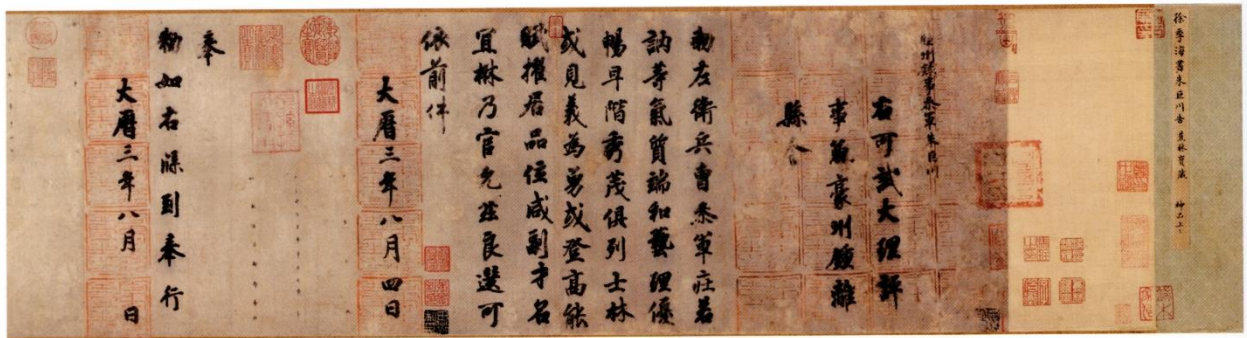 徐季海書朱巨川告 蕉林寶藏 神品上上
睦州錄事參軍朱巨川
右可試大理評
事兼豪州鍾離
縣令
勑左衛兵曹參軍莊若
訥等氣質端和藝理優
暢早階秀茂俱列士林
或見義為勇或登高能
賦擢居品位咸副才名
宜楙乃官允茲良選可
依前件
大曆三年八月四日
奉
勑如右牒到奉行
大曆三年八月 日